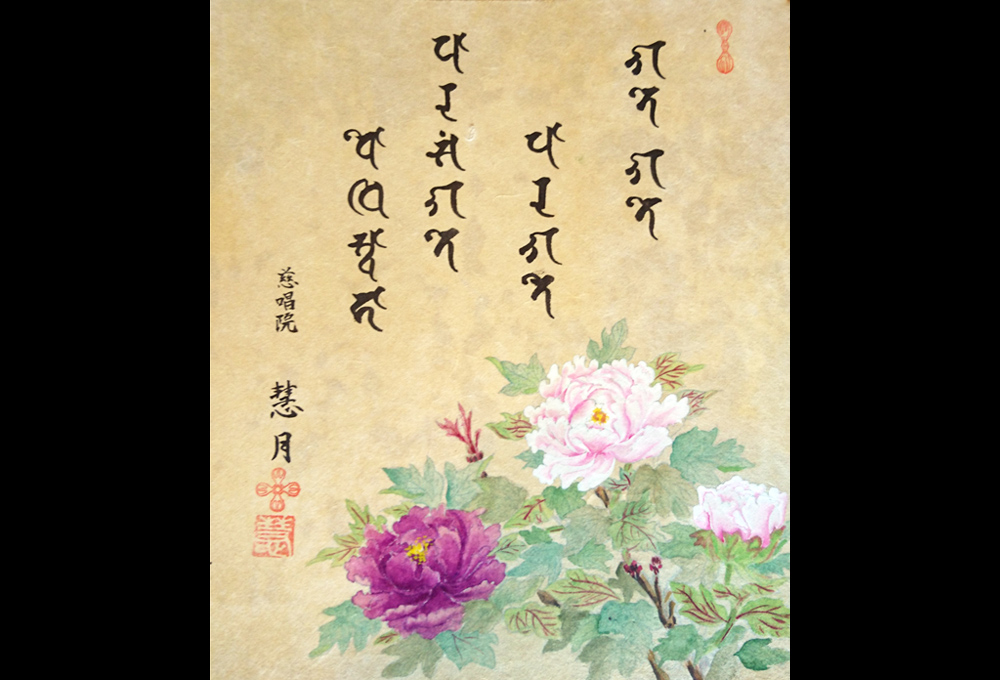 𑖐𑖝𑖸 𑖐𑖝𑖸
𑖢𑖯𑖨𑖐𑖝𑖸
𑖢𑖯𑖨𑖭𑖽𑖐𑖝𑖸
𑖤𑖺𑖠𑖰𑖭𑖿𑖪𑖯𑖮𑖯
慈唱院 慧月